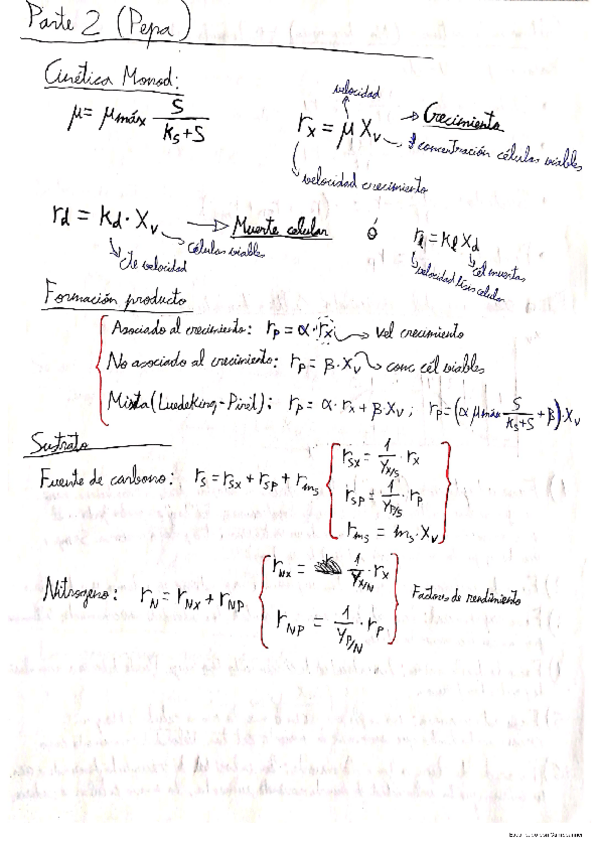 Parte 2 (Pepa)
Cinética Monod:
μ = μmáx S / (Ks + S)
velocidad
rx = μ Xv → Crecimiento
concentración células viables
velocidad crecimiento
rd = Kd · Xv → Muerte celular ó rl = Kl Xd
células viables
cte velocidad
cél muertas
velocidad lisis celular
Formación producto
Asociado al crecimiento: rp = α · rx → vel crecimiento
No asociado al crecimiento: rp = β · Xv → conc cél viables
Mixta (Luedeking-Piret): rp = α · rx + β · Xv ; rp = (α μmáx S / (Ks + S) + β) · Xv
Sustrato
Fuente de carbono: rs = rsx + rsp + rms
rsx = 1/Yx/s · rx
rsp = 1/Yp/s · rp
rms = ms · Xv
Nitrogeno: rN = rNx + rNP
rNx = 1/Yx/N · rx
rNP = 1/YP/N · rp
Factores de rendimiento